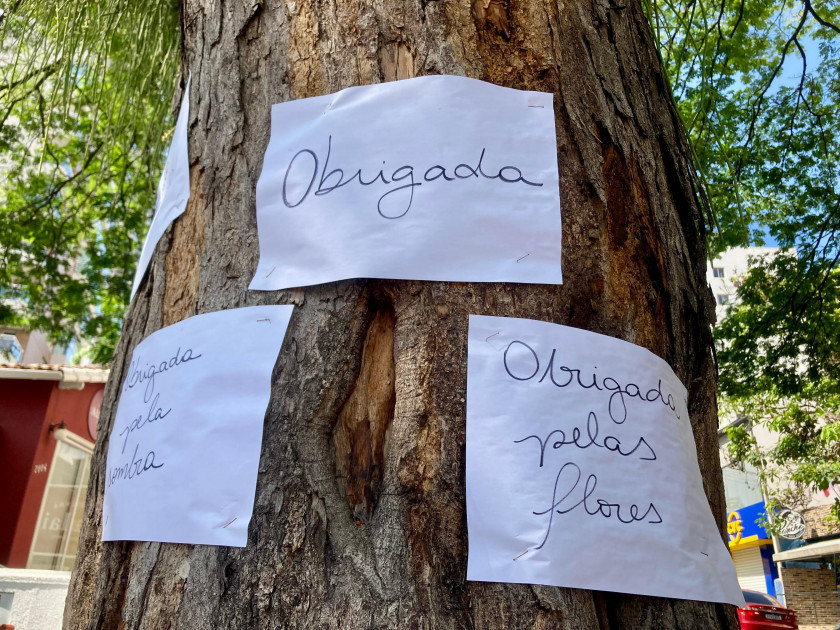 Obrigada
Obrigada
pela
sombra
Obrigada
pelas
flores
2014